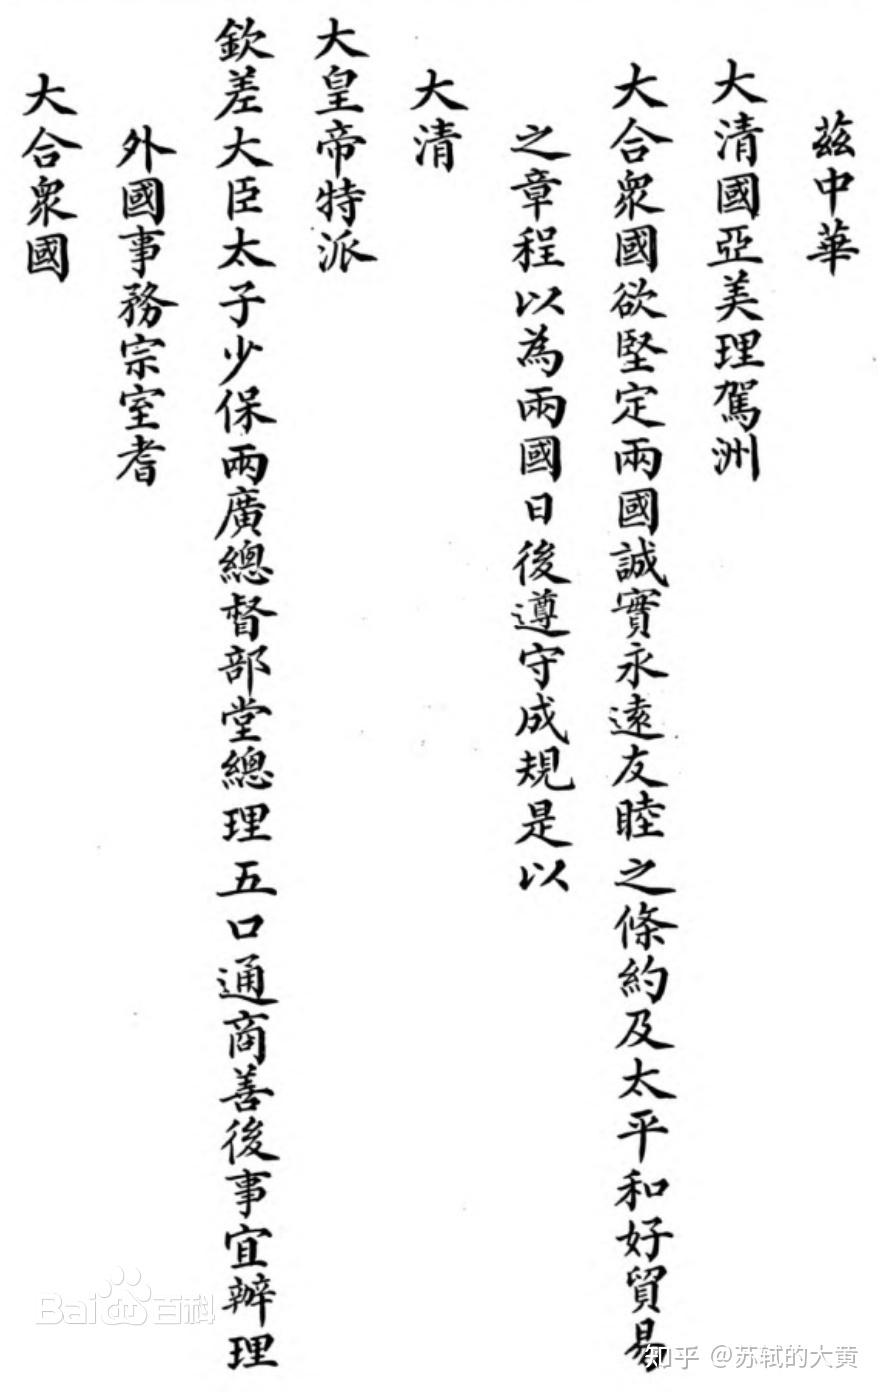 茲中華
大清國亞美理駕洲
大合衆國欲堅定兩國誠實永遠友睦之條約及太平和好貿易
之章程以為兩國日後遵守成規是以
大清
大皇帝特派
欽差大臣太子少保兩廣總督部堂總理五口通商善後事宜辦理
外國事務宗室耆
大合衆國
Baidu百科
知乎 @苏轼的大黄